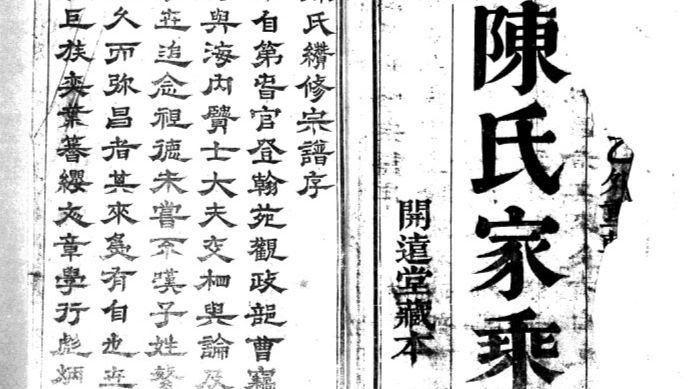 乙
陳氏家乘
開遠堂藏本
氏纘修宗譜序
自第官登翰苑觀政部曹竊
與海内賢士大夫交相與論及
世追念祖德未嘗不嘆子姓繁
久而弥昌者其來有自也世
巨族奕葉簪纓文章學行彪炳